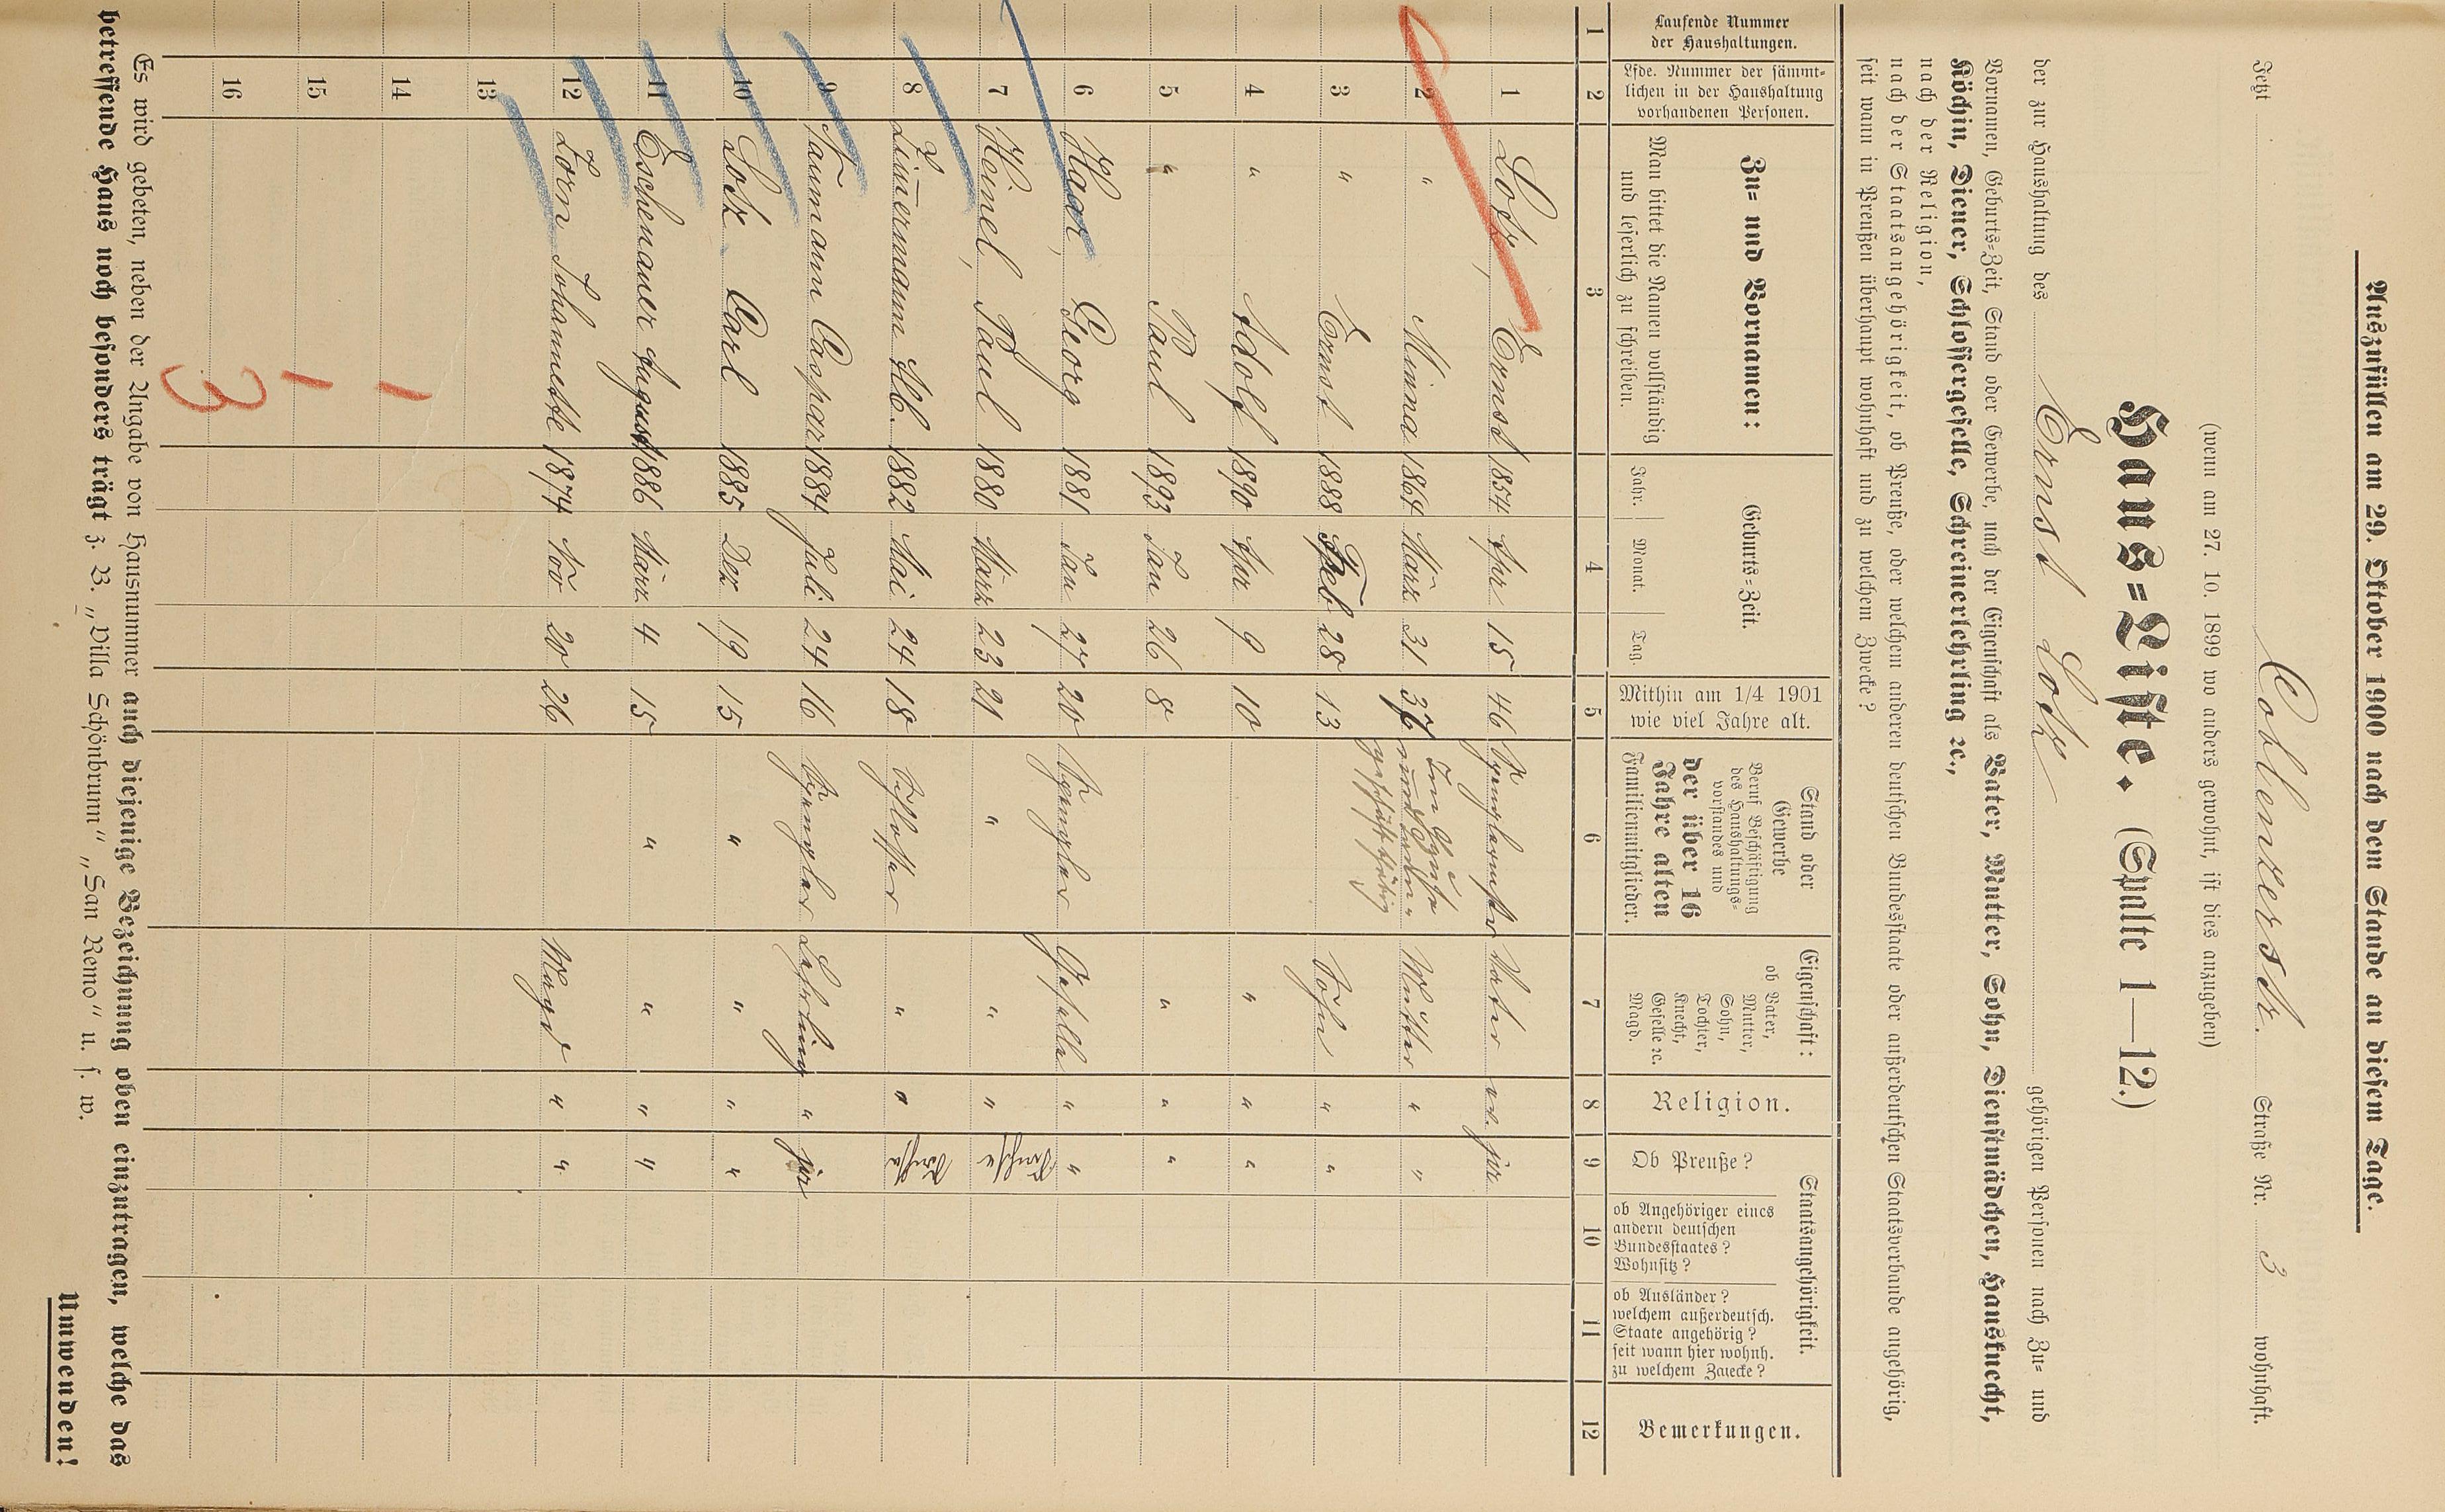 Auszufüllen am 29. Oktober 1900 nach dem Stande an diesem Tage.
Jetzt Coblenzerstr. Straße Nr. 3 wohnhaft.
(wenn am 27. 10. 1899 wo anders gewohnt, ist dies anzugeben)
Haus-Liste. (Spalte 1—12.)
der zur Haushaltung des Ernst Lotz gehörigen Personen nach Zu- und
Vornamen, Geburts-Zeit, Stand oder Gewerbe, nach der Eigenschaft als Vater, Mutter, Sohn, Dienstmädchen, Hausknecht,
Köchin, Diener, Schlossergeselle, Schreinerlehrling ꝛc.,
nach der Religion,
nach der Staatsangehörigkeit, ob Preuße, oder welchem anderen deutschen Bundesstaate oder außerdeutschen Staatsverbande angehörig,
seit wann in Preußen überhaupt wohnhaft und zu welchem Zwecke?
Laufende Nummer der Haushaltungen.
Lfde. Nummer der sämmtlichen in der Haushaltung vorhandenen Personen.
Zu- und Vornamen:
Man bittet die Namen vollständig
und leserlich zu schreiben.
Geburts-Zeit.
Jahr. Monat. Tag.
Mithin am 1/4 1901
wie viel Jahre alt.
Stand oder
Gewerbe
Beruf Beschäftigung
des Haushaltungs-
vorstandes und
der über 16
Jahre alten
Familienmitglieder.
Eigenschaft:
ob Vater,
Mutter,
Sohn,
Tochter,
Knecht,
Geselle ꝛc.
Magd.
Religion.
Staatsangehörigkeit.
Ob Preuße?
ob Angehöriger eines
andern deutschen
Bundesstaates?
Wohnsitz?
ob Ausländer?
welchem außerdeutsch.
Staate angehörig?
seit wann hier wohnh.
zu welchem Zwecke?
Bemerkungen.
1 2 3 4 5 6 7 8 9 10 11 12
1 Lotz, Ernst 1854 Apr 15 46 Spenglermster Vater ev. ja
2 " Minna 1864 März 31 36 Mutter " "
3 " Ernst 1888 Feb 28 13 Sohn " "
4 " Adolf 1890 Apr 9 10 " " "
5 " Paul 1893 Jan 26 8 " " "
6 Haar, Georg 1881 Jan 27 20 Spengler Geselle " "
7 Heinel, Paul 1880 März 23 21 " " "
8 Zimermann Alb. 1882 Mai 24 18 Schlosser " "
9 Naumann Caspar 1884 Juli 24 16 Spengler Lehrling " ja
10 Lotz Carl 1885 Dez 19 15 " " " "
11 Eschenauer August 1886 März 4 15 " " " "
12 Zorn Johannette 1874 Nov 20 26 Magd " "
13
14
15
16
1
1
3
Es wird gebeten, neben der Angabe von Hausnummer auch diejenige Bezeichnung oben einzutragen, welche das
betreffende Haus noch besonders trägt z. B. „Villa Schönbrunn" „San Remo" u. s. w.
Umwenden!